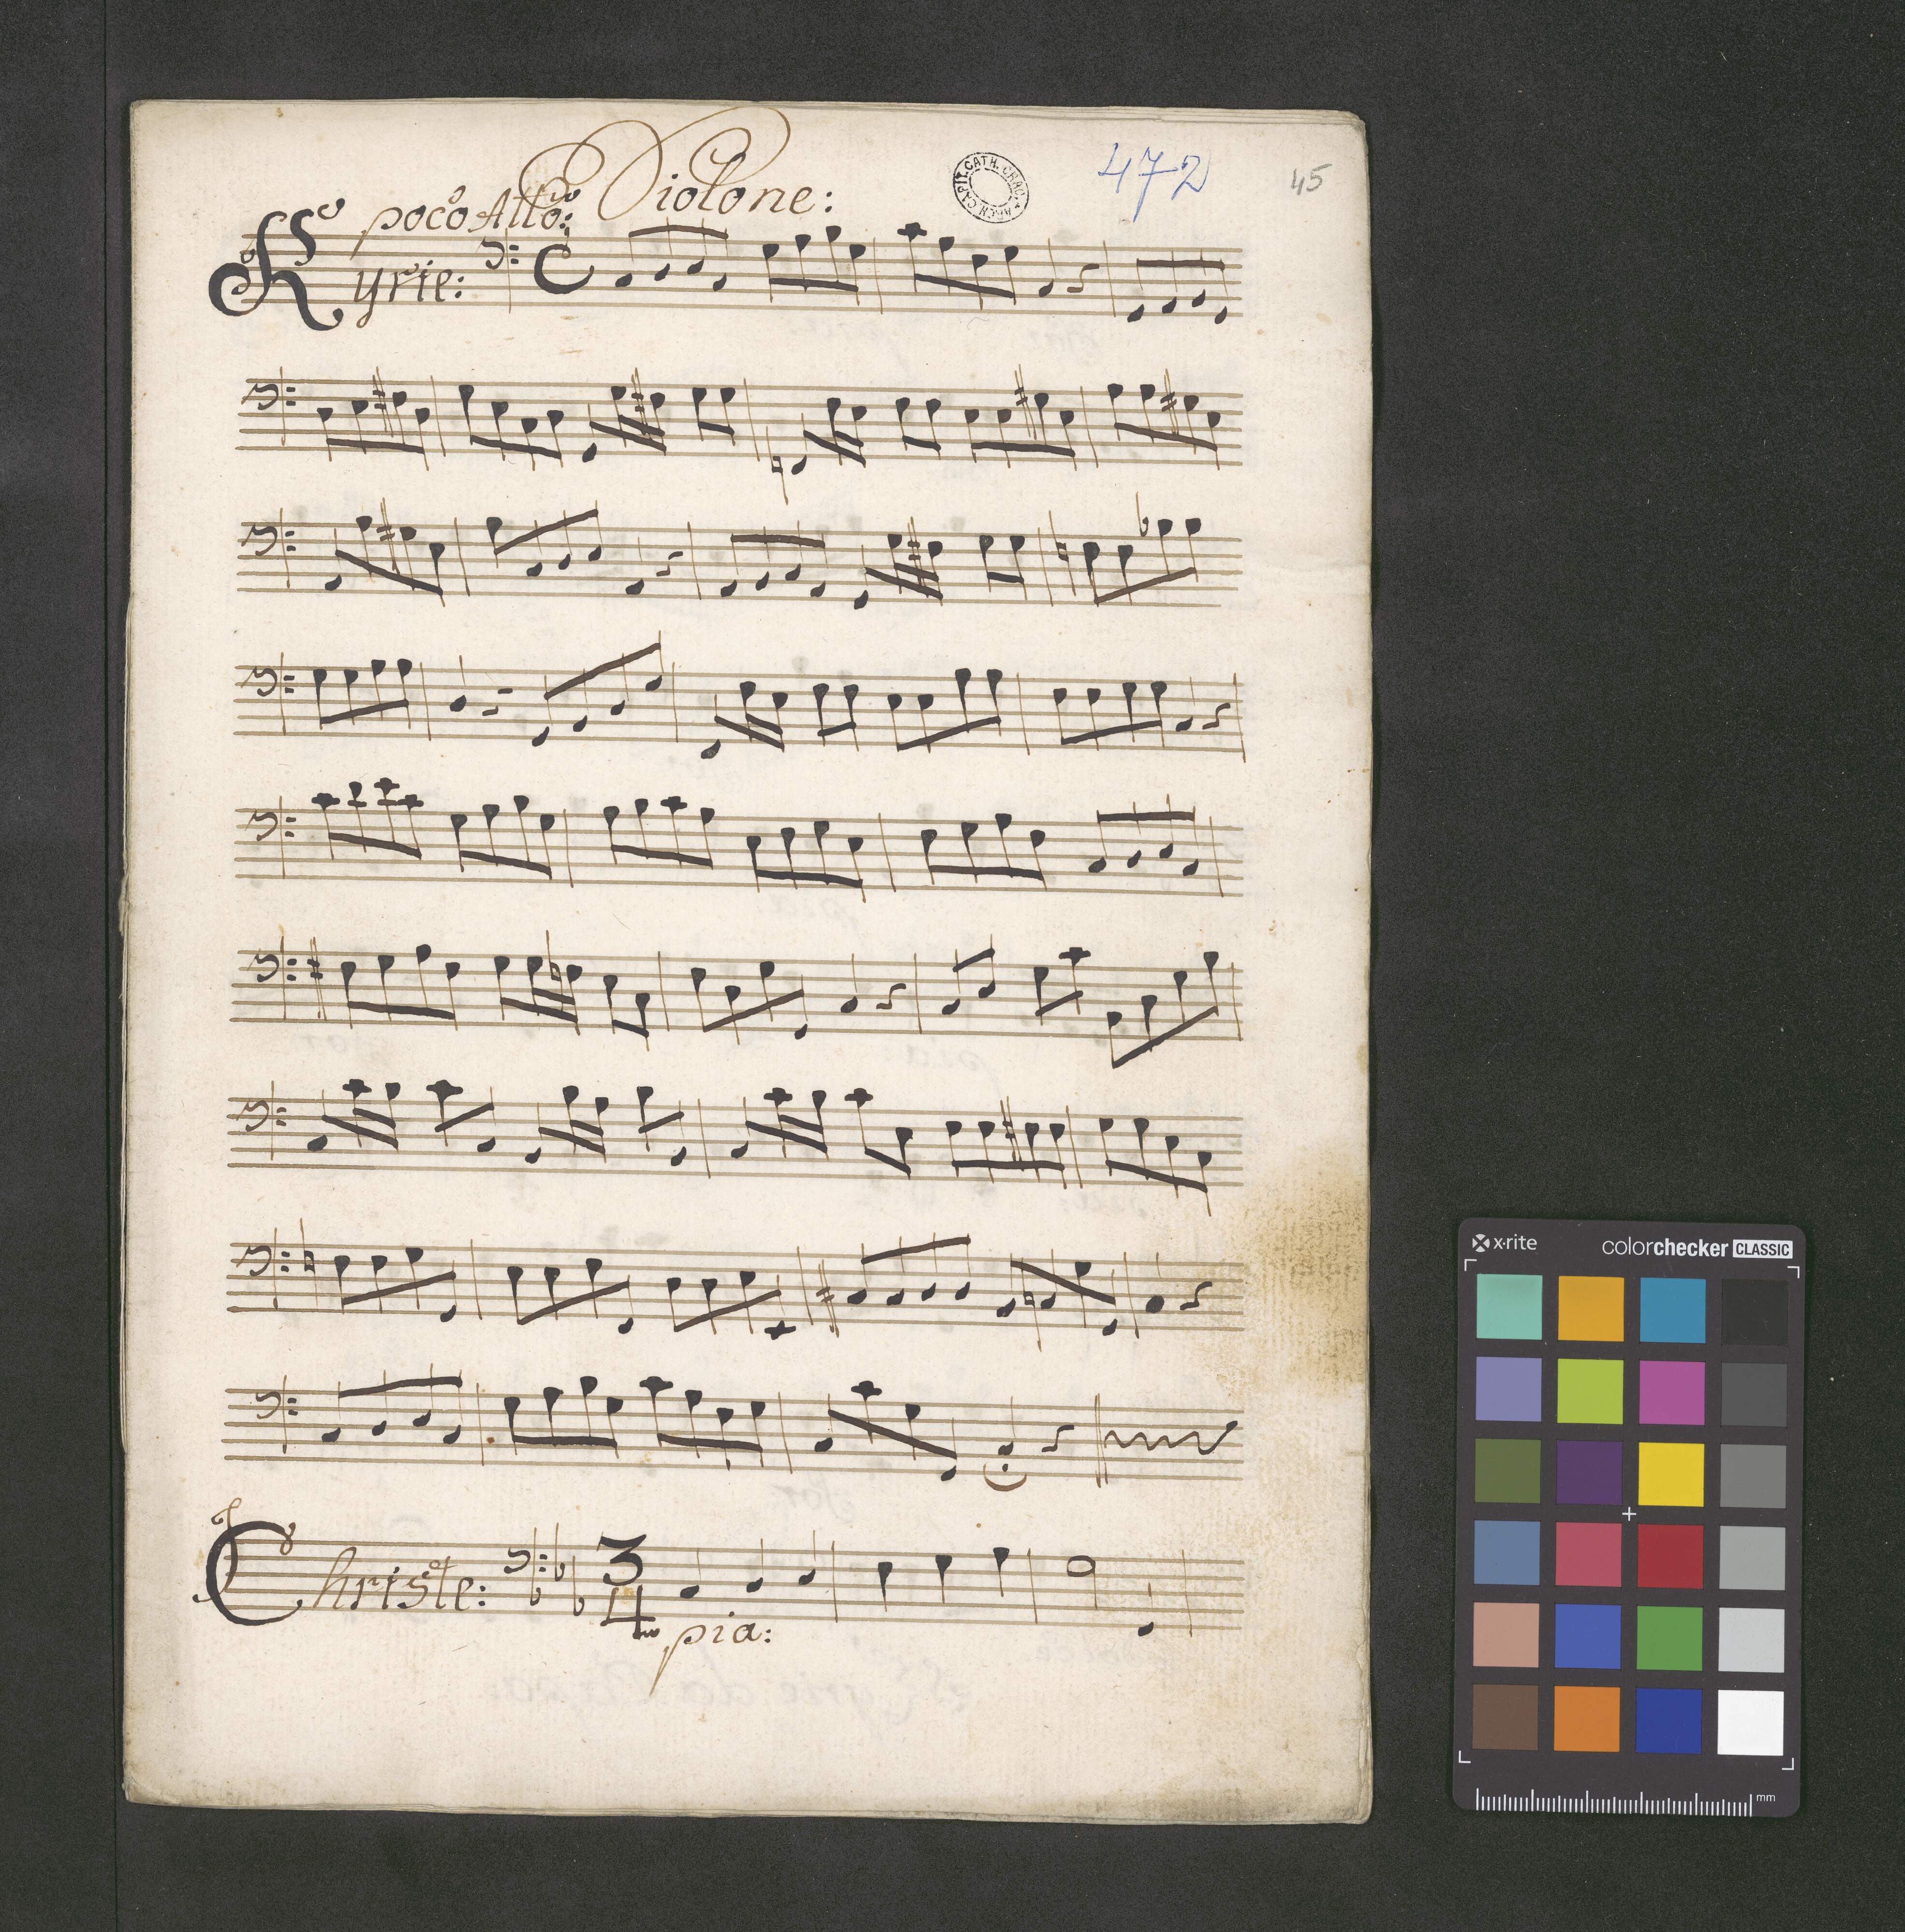 Violone:
472
45
CAPIT. CATH. CRAC. ARCH.
poco Allo:
Kyrie:
Christe:
3
4
pia:
x·rite
colorchecker CLASSIC
mm